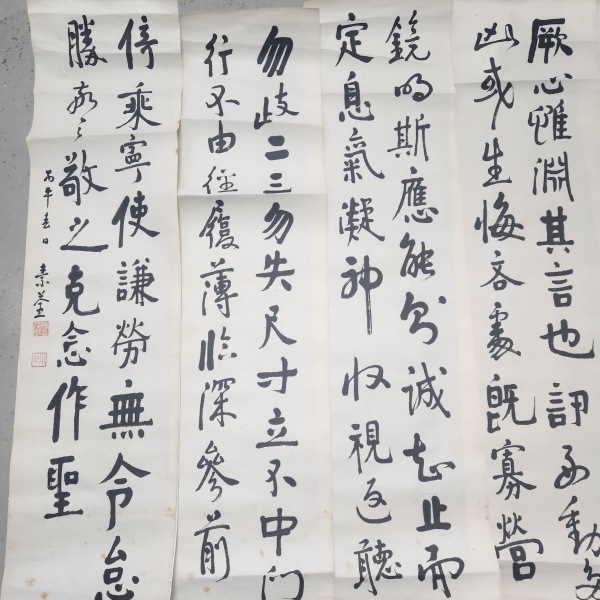 厥心惟淵其言也訒毋動
凶或生悔吝處既寡營
鏡明斯應能知誠知止而
定息氣凝神收視返聽
勿歧二三勿失尺寸立不中門
行不由徑履薄臨深參前
倚乘寧使謙勞無令怠
勝敬之克念作聖
丙午春日